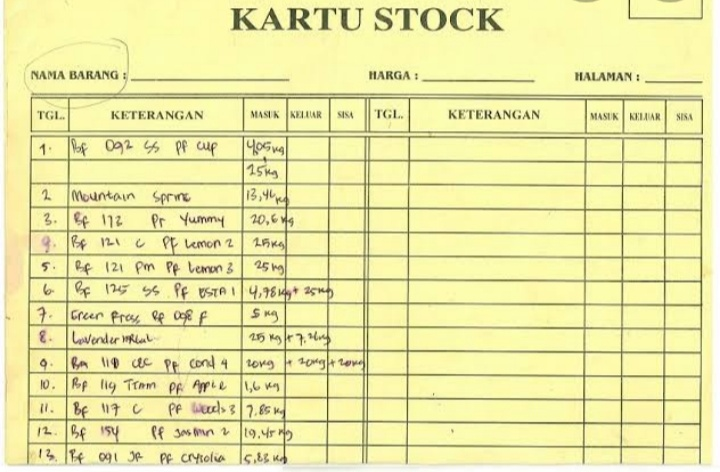 KARTU STOCK
NAMA BARANG : HARGA : HALAMAN :
TGL. KETERANGAN MASUK KELUAR SISA TGL. KETERANGAN MASUK KELUAR SISA
1. Bf 092 SS Pf cup 4,05 kg
25 kg
2 Mountain Spring 13,46 kg
3. Bf 172 Pf Yummy 20,6 kg
Bf 121 C Pf Lemon 2 25 kg
5. Bf 121 Pm Pf Lemon 3 25 kg
6. Bf 125 SS Pf 4,78 kg + 25 kg
7. Green Bf 098 F 5 kg
8. Lavender 25 kg + 7, kg
9. 119 Pf Cond 4 20 kg + 20 kg + 20 kg
10. Bf 119 Pf Apple 1,6 kg
11. Bf 117 C Pf Woods 3 7,85 kg
12. Bf 154 Pf Jasmin 2 19,45 kg
13. Bf 091 JR Pf 5,83 kg